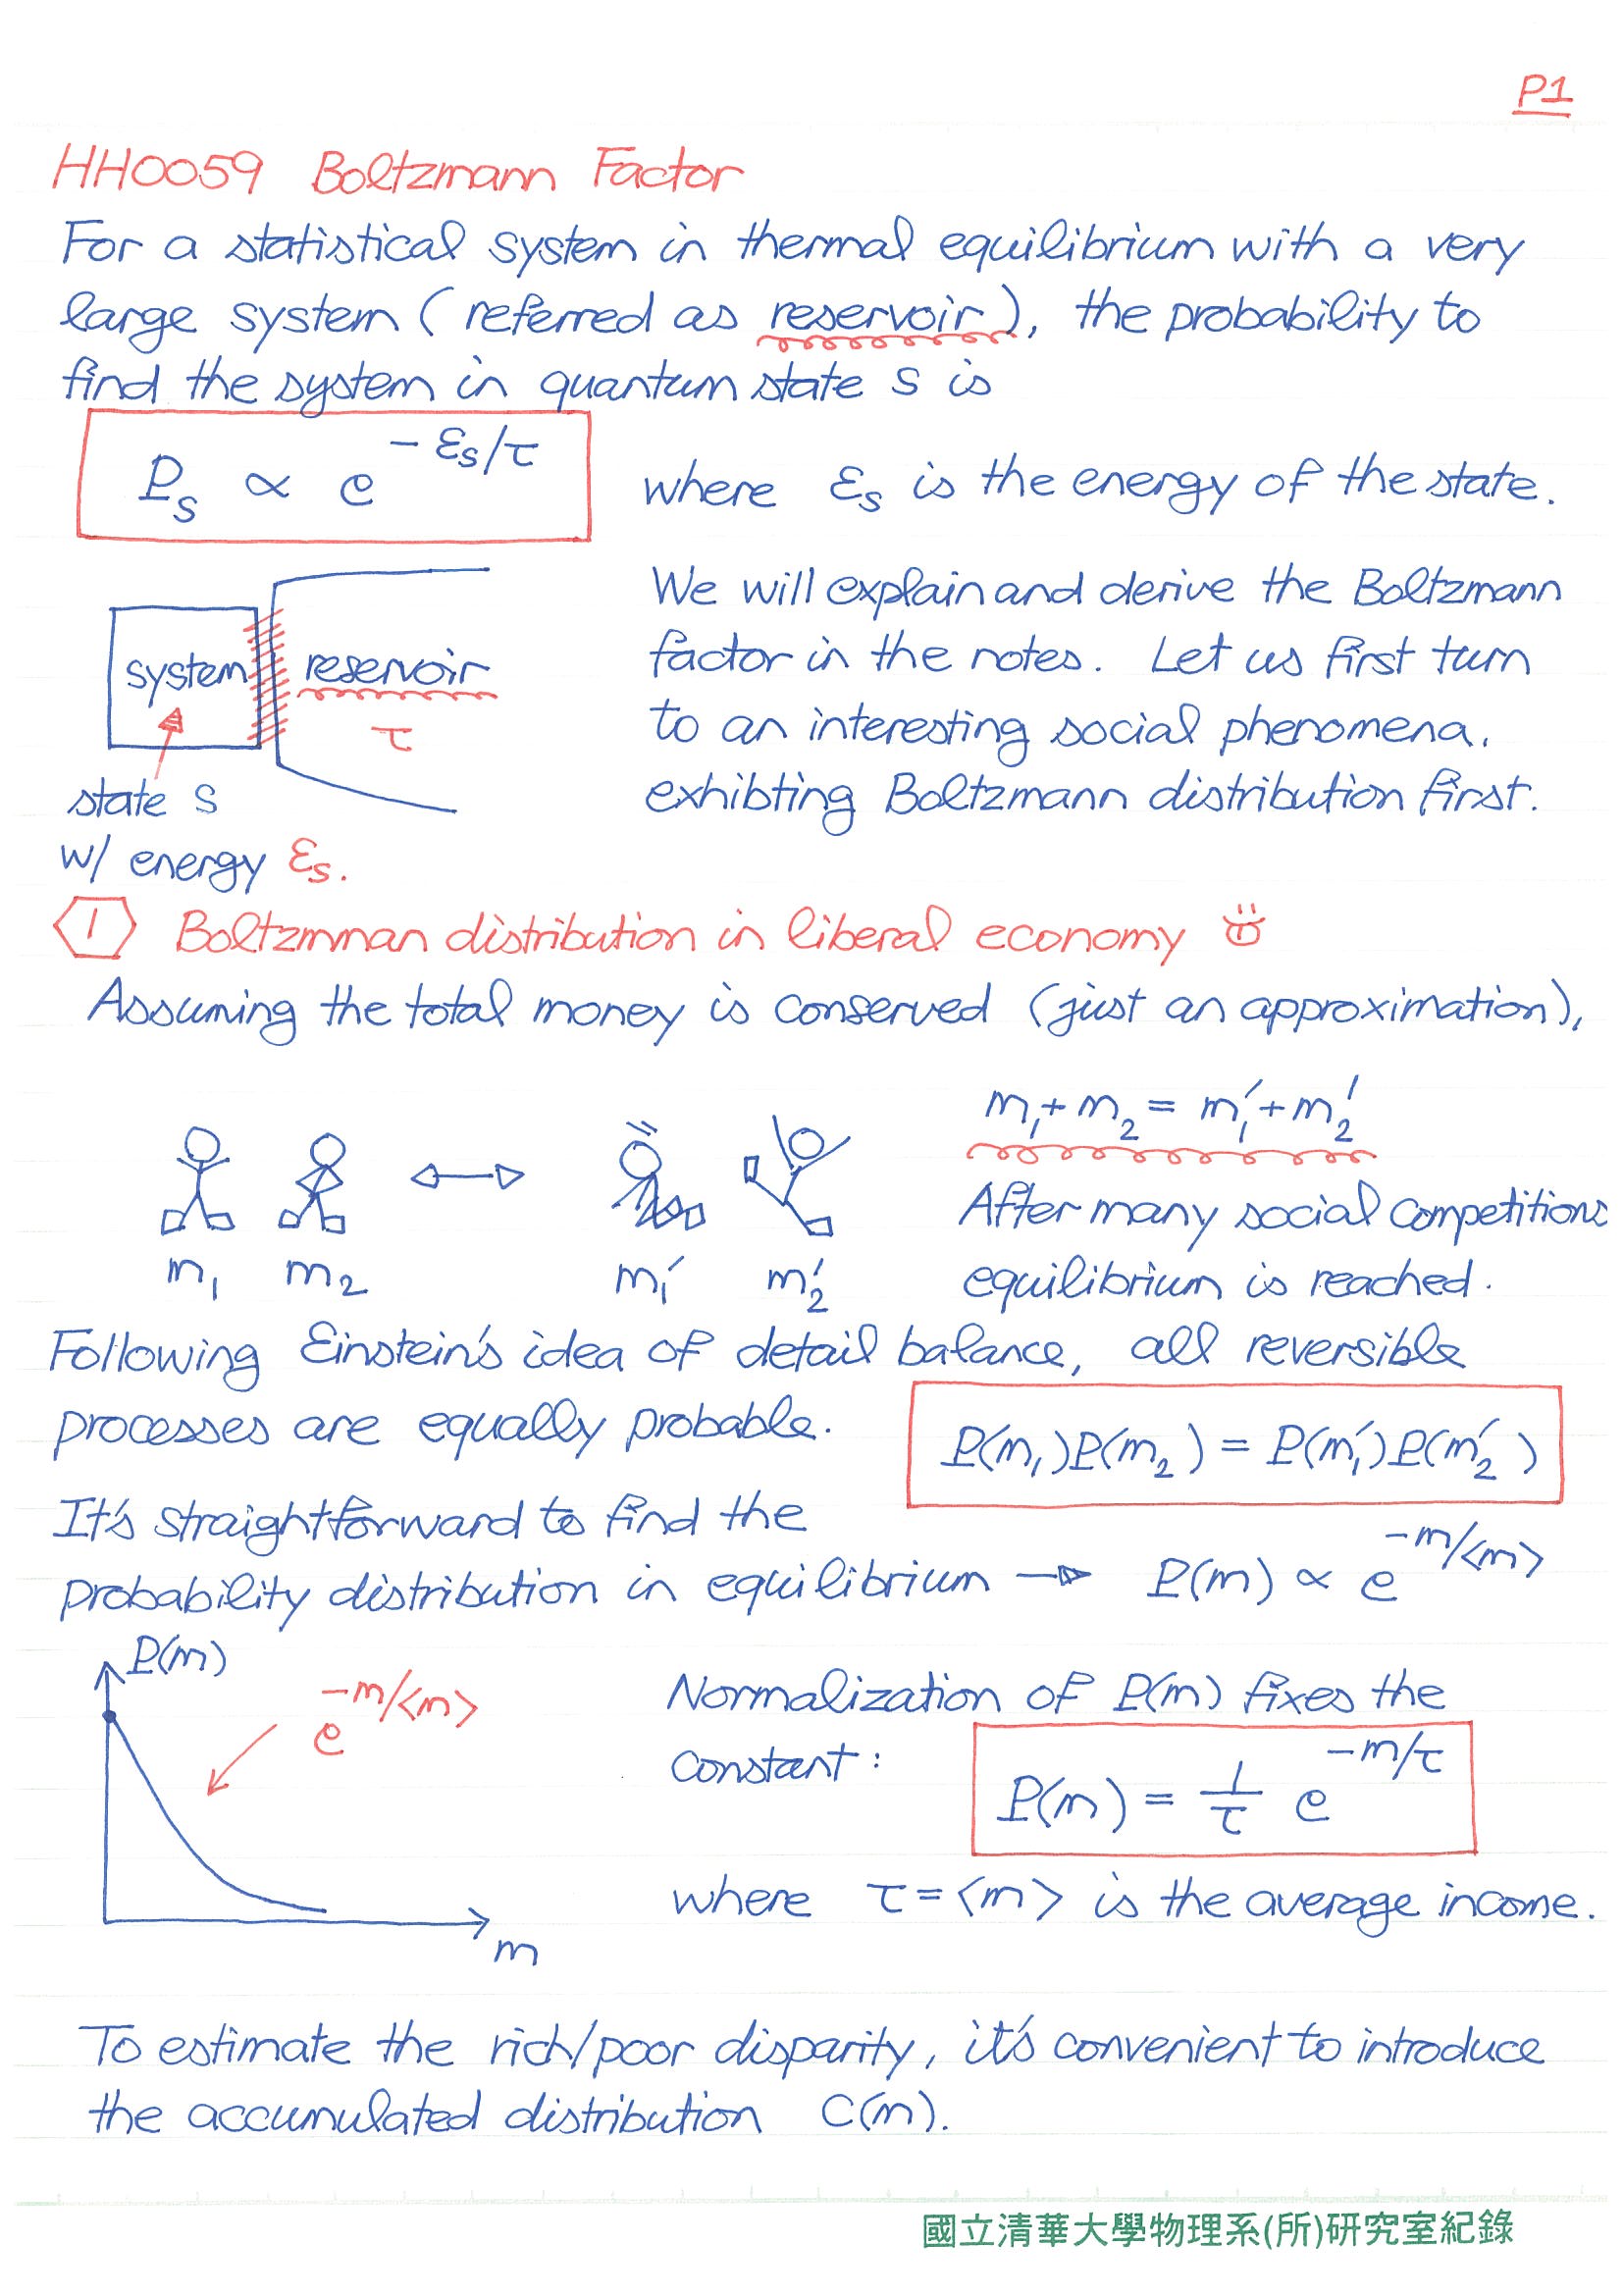 P1
HH0059 Boltzmann Factor
For a statistical system in thermal equilibrium with a very
large system (referred as reservoir), the probability to
find the system in quantum state s is
P_s ∝ e^{-ε_s/τ} where ε_s is the energy of the state.
We will explain and derive the Boltzmann
factor in the notes. Let us first turn
to an interesting social phenomena,
exhibting Boltzmann distribution first.
system reservoir
τ
state s
w/ energy ε_s.
1 Boltzmnan distribution in liberal economy
Assuming the total money is conserved (just an approximation),
m_1+m_2 = m_1'+m_2'
After many social competitions
equilibrium is reached.
m_1 m_2 m_1' m_2'
Following Einstein's idea of detail balance, all reversible
processes are equally probable.
P(m_1)P(m_2) = P(m_1')P(m_2')
It's straightforward to find the
probability distribution in equilibrium → P(m) ∝ e^{-m/<m>}
P(m)
e^{-m/<m>}
m
Normalization of P(m) fixes the
constant: P(m) = 1/τ e^{-m/τ}
where τ = <m> is the average income.
To estimate the rich/poor disparity, it's convenient to introduce
the accumulated distribution C(m).
國立清華大學物理系(所)研究室紀錄